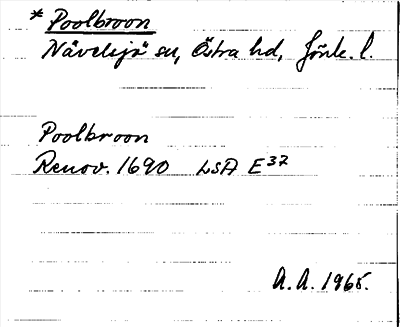 * Poolbroon
Nävelsjö sn, Östra hd, Jönk. l.
Poolbroon
Renov. 1690 LSA E 37
A.A. 1965.